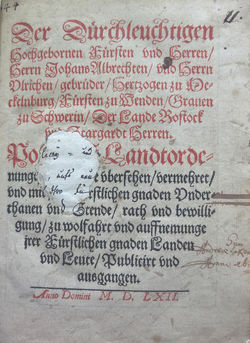 Der Dürchleuchtigen
Hochgebornen Fürsten vnd Herren/
Herrn Johans Albrechten/ vnd Herrn
Vlrichen/ gebrüder/ Hertzogen zu Me-
ckelnburg/ Fürsten zu Wenden/ Grauen
zu Schwerin/ Der Lande Rostock
Stargardt Herren.
Po Landtorde-
nunge vbersehen/ vermehret/
vnd mit stlichen gnaden Vnder
thanen vnd Stende/ rath vnd bewilli-
gung/ zu wolfahrt vnd auffnemunge
jrer Fürstlichen gnaden Landen
vnd Leute/ Publicirt vnd
ausgangen.
Anno Domini M. D. LXII.